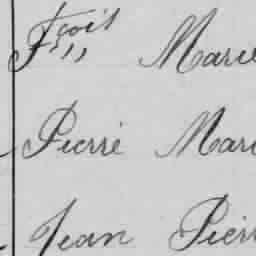 Fçois Marie
Pierre Mari
Jean Pierr